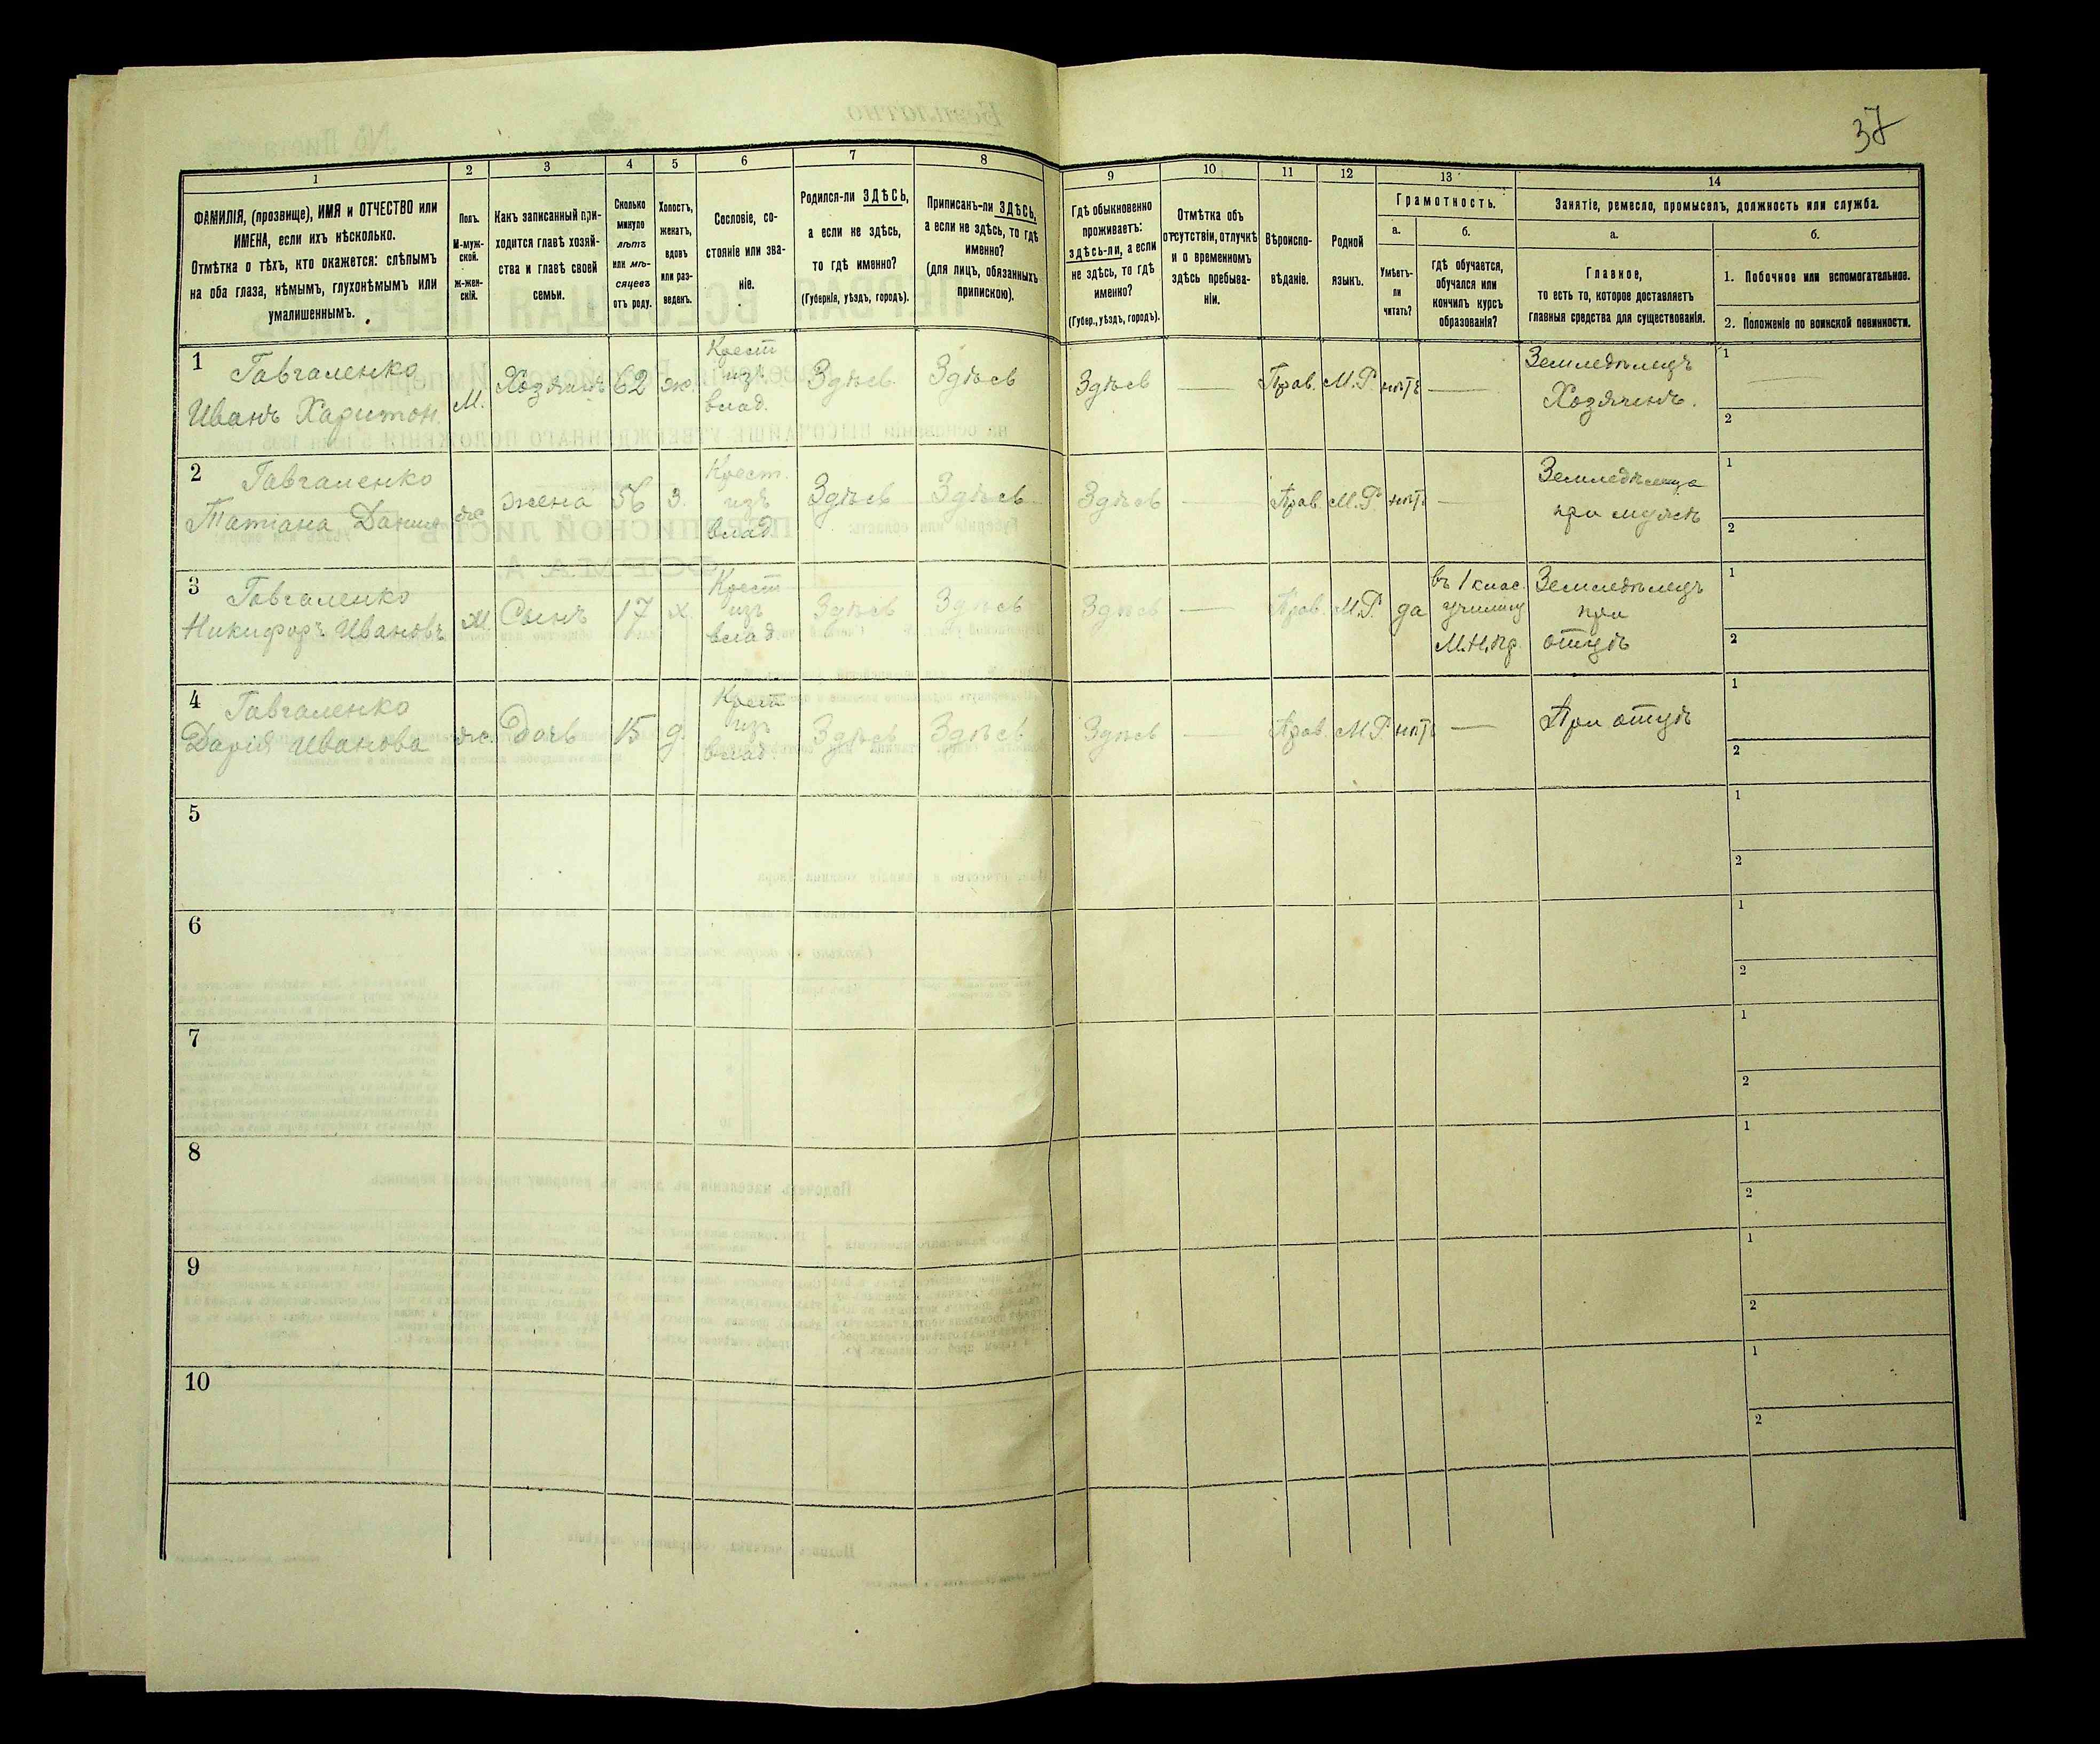 37
1
2
3
4
5
6
7
8
9
10
11
12
13
14
ФАМИЛІЯ, (прозвище), ИМЯ и ОТЧЕСТВО или
ИМЕНА, если ихъ нѣсколько.
Отмѣтка о тѣхъ, кто окажется: слѣпымъ
на оба глаза, нѣмымъ, глухонѣмымъ или
умалишеннымъ.
Полъ.
М-муж-
ской.
Ж-жен-
скій.
Какъ записанный при-
ходится главѣ хозяй-
ства и главѣ своей
семьи.
Сколько
минуло
лѣтъ
или мѣ-
сяцевъ
отъ роду.
Холостъ,
женатъ,
вдовъ
или раз-
веденъ.
Сословіе, со-
стояніе или зва-
ніе.
Родился-ли ЗДѢСЬ,
а если не здѣсь,
то гдѣ именно?
(Губернія, уѣздъ, городъ).
Приписанъ-ли ЗДѢСЬ,
а если не здѣсь, то гдѣ
именно?
(для лицъ, обязанныхъ
припискою).
Гдѣ обыкновенно
проживаетъ:
здѣсь-ли, а если
не здѣсь, то гдѣ
именно?
(Губер., уѣздъ, городъ).
Отмѣтка объ
отсутствіи, отлучкѣ
и о временномъ
здѣсь пребыва-
ніи.
Вѣроиспо-
вѣданіе.
Родной
языкъ.
Грамотность.
а.
Умѣетъ-
ли
читать?
б.
гдѣ обучается,
обучался или
кончилъ курсъ
образованія?
Занятіе, ремесло, промыселъ, должность или служба.
а.
Главное,
то есть то, которое доставляетъ
главныя средства для существованія.
б.
1. Побочное или вспомогательное.
2. Положеніе по воинской повинности.
1
Гавчаленко
Иванъ Харитон.
М.
Хозяинъ
62
ж.
Крест
изъ
влад.
Здѣсь
Здѣсь
Здѣсь
—
Прав.
М.Р.
нѣтъ
—
Земледѣлецъ
Хозяинъ.
1
2
2
Гавчаленко
Татіана Данил
ж
жена
56
з.
Крест.
изъ
влад.
Здѣсь
Здѣсь
Здѣсь
—
Прав.
М.Р.
нѣтъ
—
Земледѣлица
при мужѣ
1
2
3
Гавчаленко
Никифоръ Ивановъ
М
Сынъ
17
х.
Крест
изъ
влад.
Здѣсь
Здѣсь
Здѣсь
—
Прав.
М.Р.
да
въ 1 клас.
училищ
М.Н.пр.
Земледѣлецъ
при
отцѣ
1
2
4
Гавчаленко
Дарія Иванова
ж.
Дочь
15
д.
Крест
изъ
влад.
Здѣсь
Здѣсь
Здѣсь
—
Прав.
М.Р.
нѣтъ
—
При отцѣ
1
2
5
1
2
6
1
2
7
1
2
8
1
2
9
1
2
10
1
2